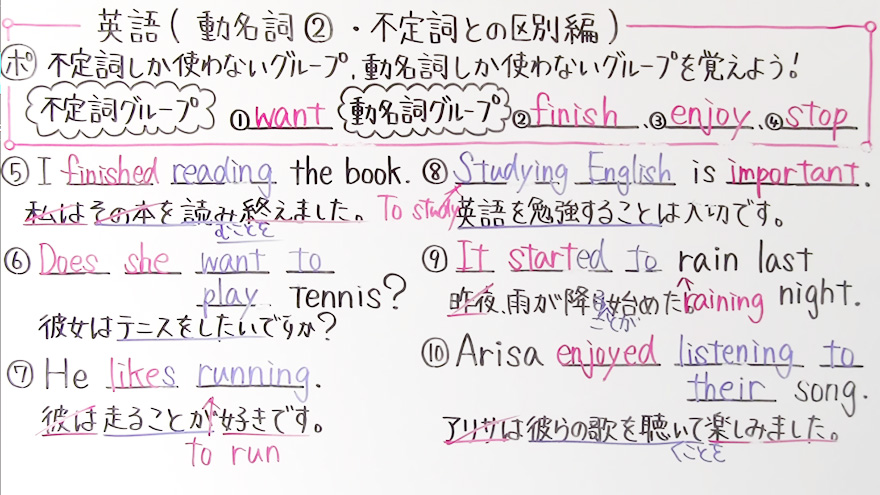 英語(動名詞②・不定詞との区別編)
ポ 不定詞しか使わないグループ、動名詞しか使わないグループを覚えよう!
不定詞グループ ①want 動名詞グループ ②finish ③enjoy ④stop
⑤ I finished reading the book.
私はその本を読み終えました。
むことを
⑥ Does she want to
play Tennis?
彼女はテニスをしたいですか?
⑦ He likes running.
彼は走ることが好きです。
to run
⑧ Studying English is important.
To study
英語を勉強することは大切です。
⑨ It started to rain last
night.
raining
昨夜、雨が降り始めた。
ことが
⑩ Arisa enjoyed listening to
their song.
アリサは彼らの歌を聴いて楽しみました。
くことを